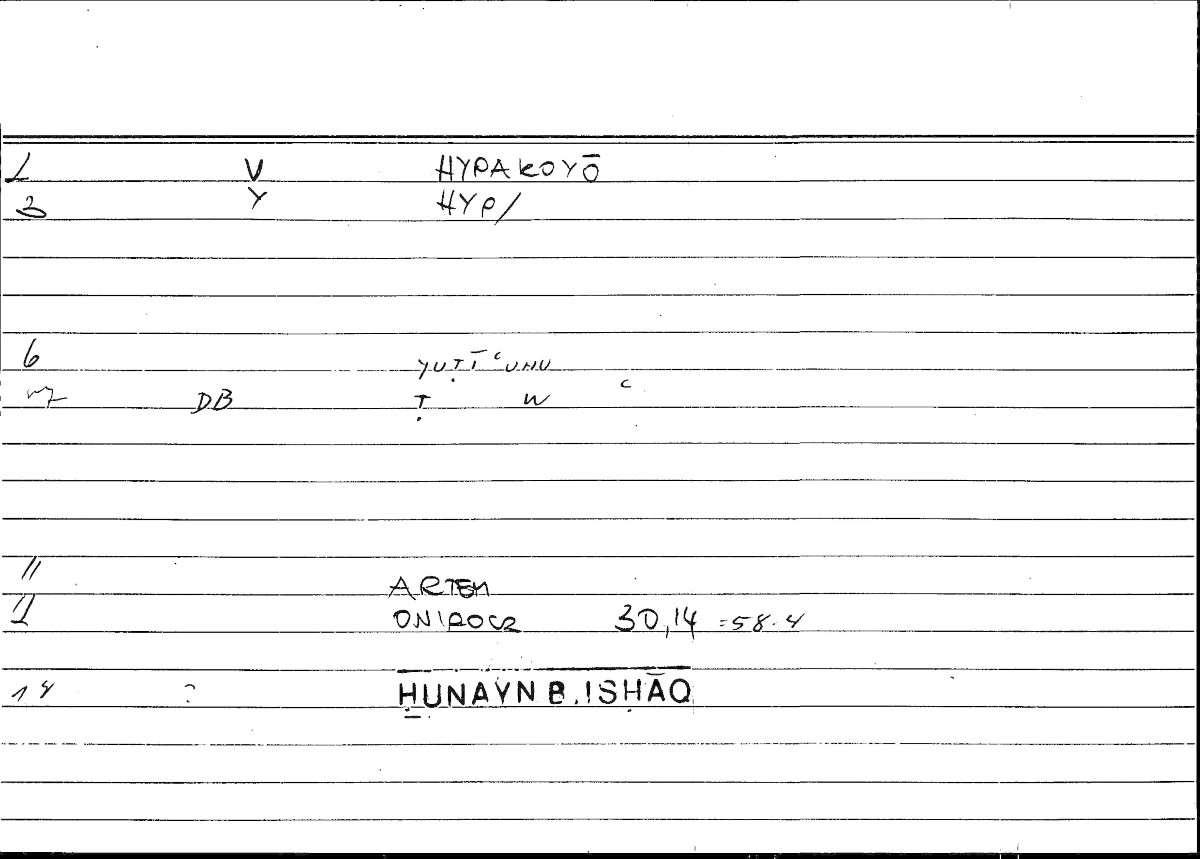 1 V HYPAKOYŌ
3 Y HYP/
6 YUṬĪʿUHU
DB Ṭ W ʿ
11 ARTEM
1 ONIROCR 30,14 =58.4
14 ? ḤUNAYN B. ISḤĀQ